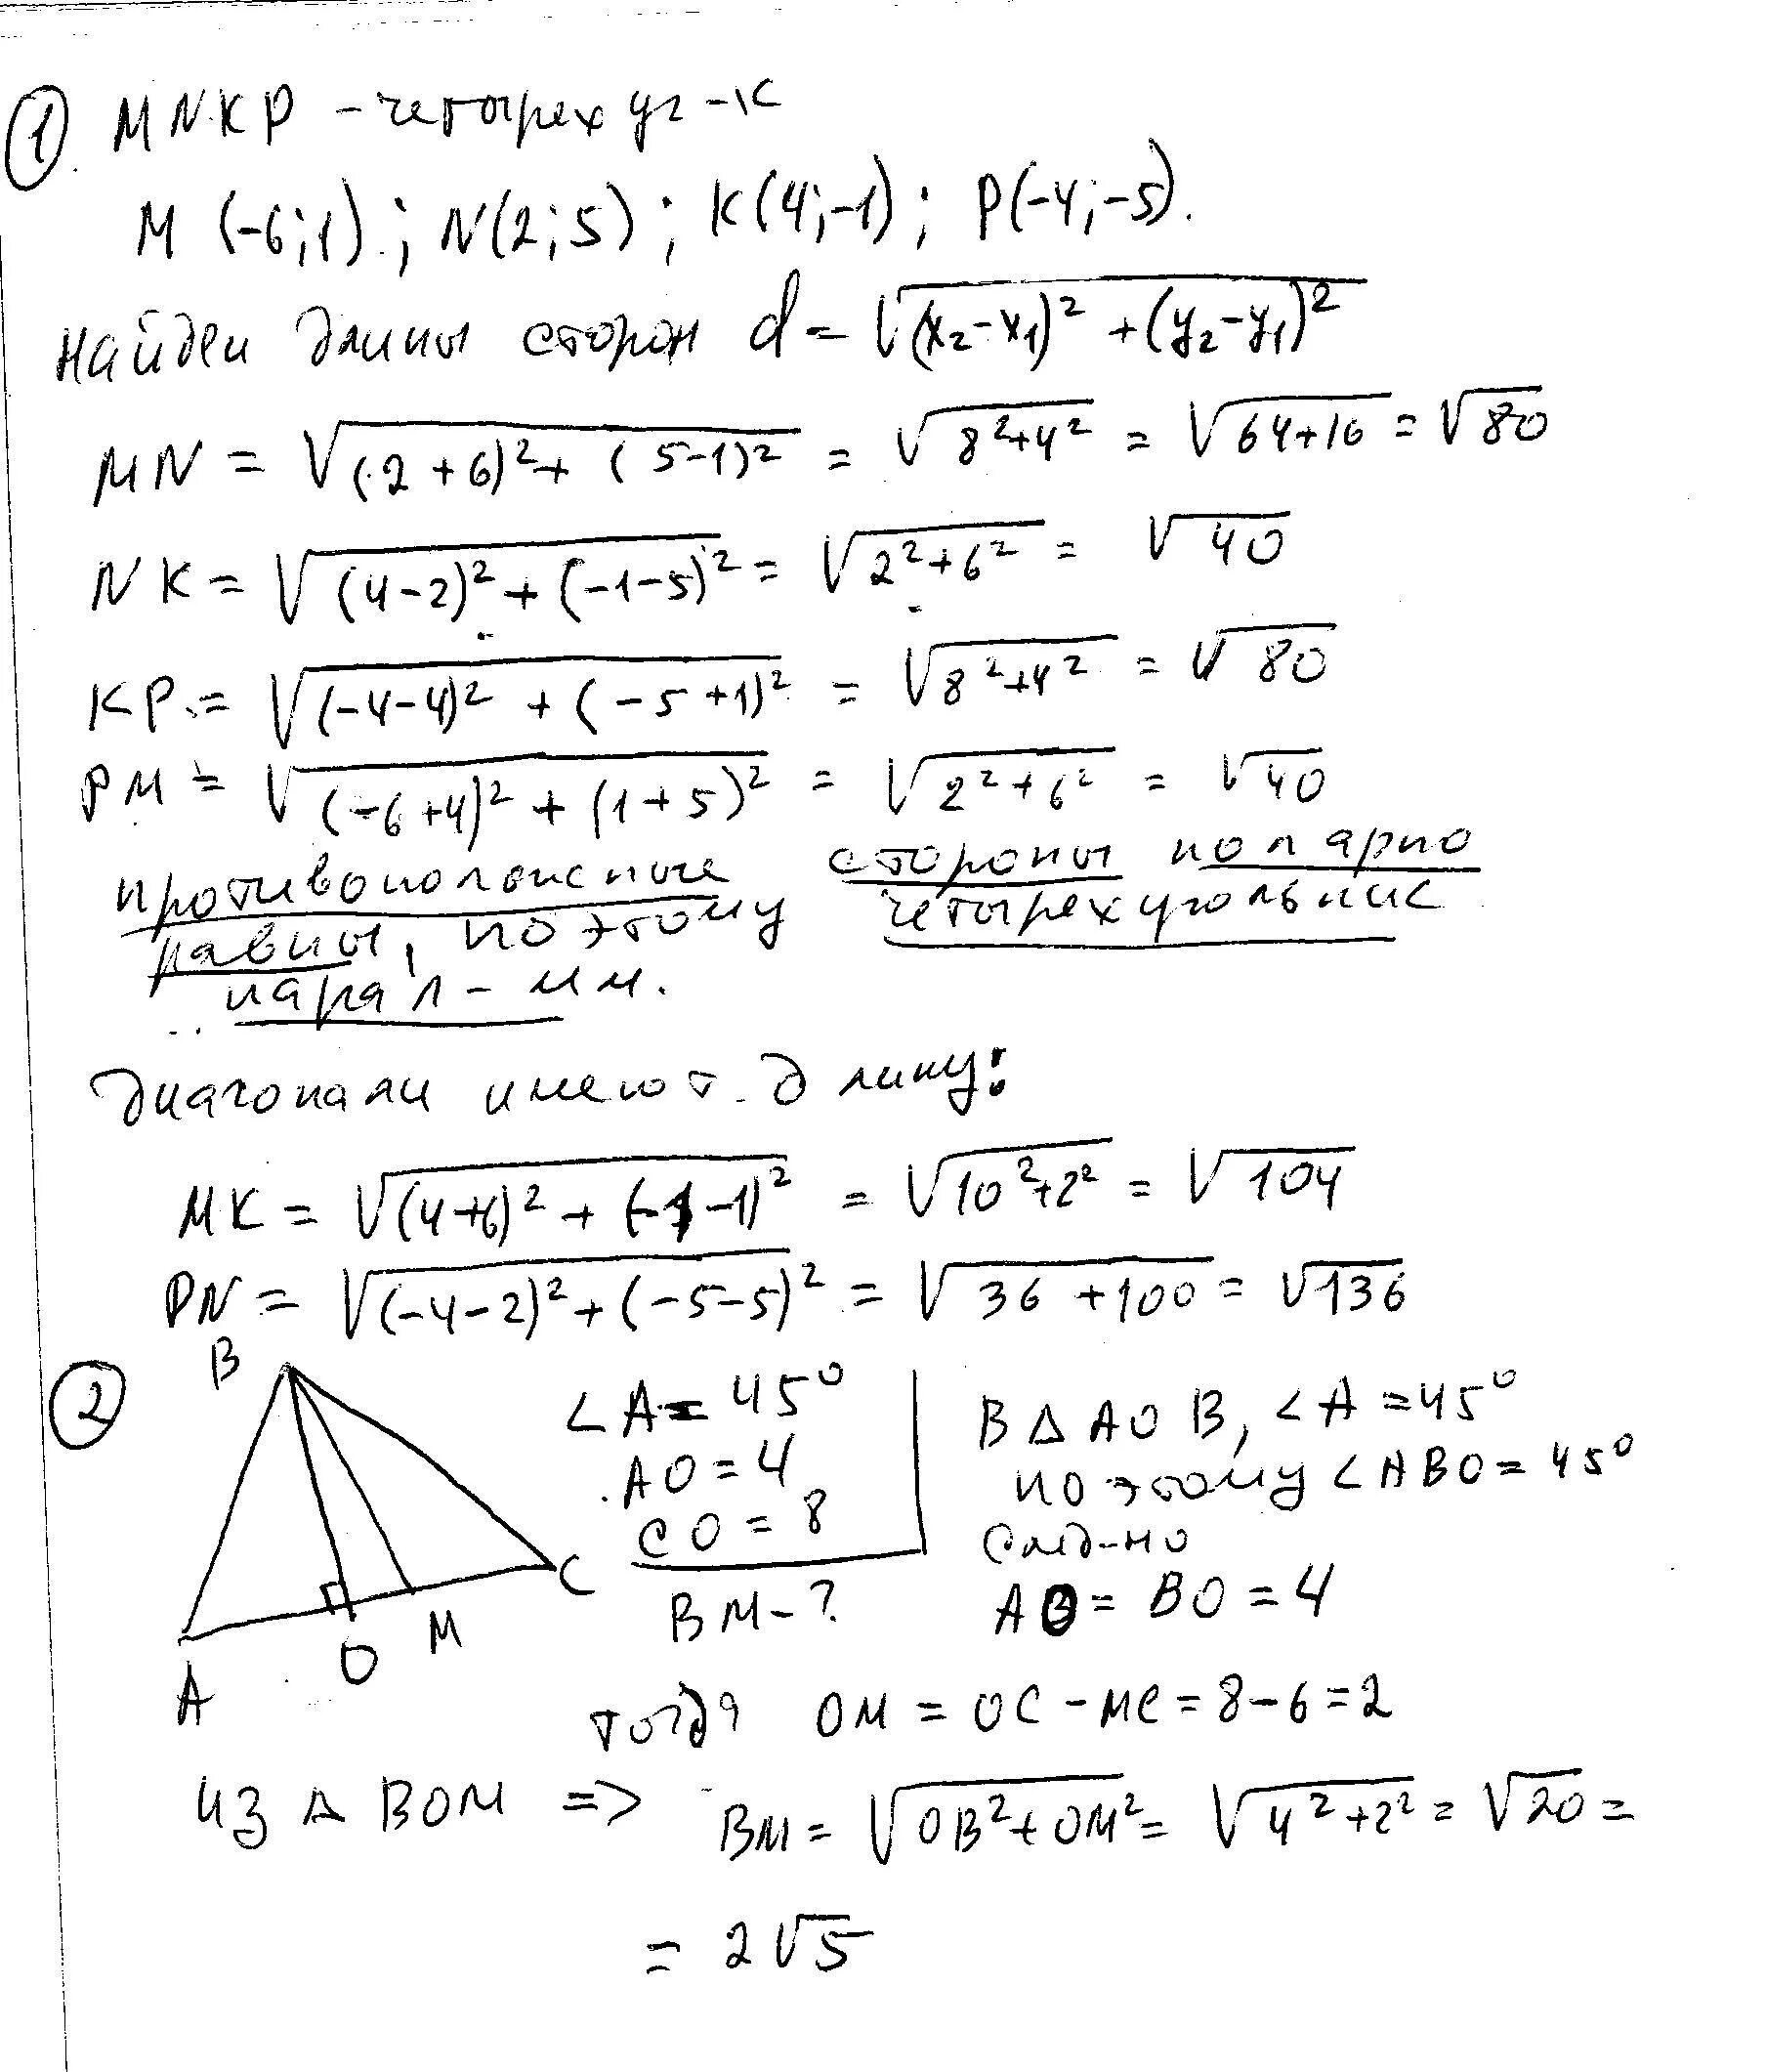 ① MNKP - четырехуг-к
M (-6;1); N(2;5); K(4;-1); P(-4;-5).
Найдем длины сторон d = √((x₂-x₁)² + (y₂-y₁)²)
MN = √((2+6)² + (5-1)²) = √(8²+4²) = √(64+16) = √80
NK = √((4-2)² + (-1-5)²) = √(2²+6²) = √40
KP = √((-4-4)² + (-5+1)²) = √(8²+4²) = √80
PM = √((-6+4)² + (1+5)²) = √(2²+6²) = √40
противоположные стороны попарно
равны, поэтому четырехугольник
парал-мм.
Диагонали имеют длину:
MK = √((4+6)² + (-1-1)²) = √(10²+2²) = √104
PN = √((-4-2)² + (-5-5)²) = √(36+100) = √136
②
B
A
O
M
C
∠A = 45°
AO = 4
CO = 8
BM - ?
В △ AOB, ∠A = 45°
поэтому ∠ABO = 45°
след-но
AO = BO = 4
тогда OM = OC - MC = 8 - 6 = 2
из △ BOM => BM = √(OB²+OM²) = √(4²+2²) = √20 =
= 2√5